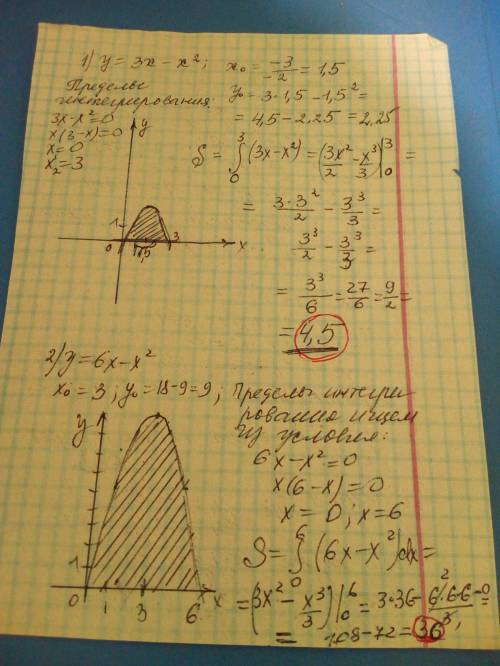 1) y = 3x - x²; x₀ = -3/-2 = 1,5
Пределы
интегрирования:
3x-x²=0
x(3-x)=0
x=0
x₂=3
y₀ = 3·1,5 - 1,5² =
= 4,5 - 2,25 = 2,25
S = ∫₀³ (3x-x²) = (3x²/2 - x³/3)|₀³ =
= 3·3²/2 - 3³/3 =
3³/2 - 3³/3 =
= 3³/6 = 27/6 = 9/2 =
= 4,5
y
1
0
1,5
3
x
2) y = 6x - x²
x₀ = 3; y₀ = 18-9=9; Пределы интегри
рования ищем
из условия:
6x - x² = 0
x(6-x) = 0
x = 0; x = 6
S = ∫₀⁶ (6x-x²)dx =
= (3x² - x³/3)|₀⁶ = 3·36 - 6²·6·6/3 - 0
= 108-72 = 36
y
1
0
1
3
6
x